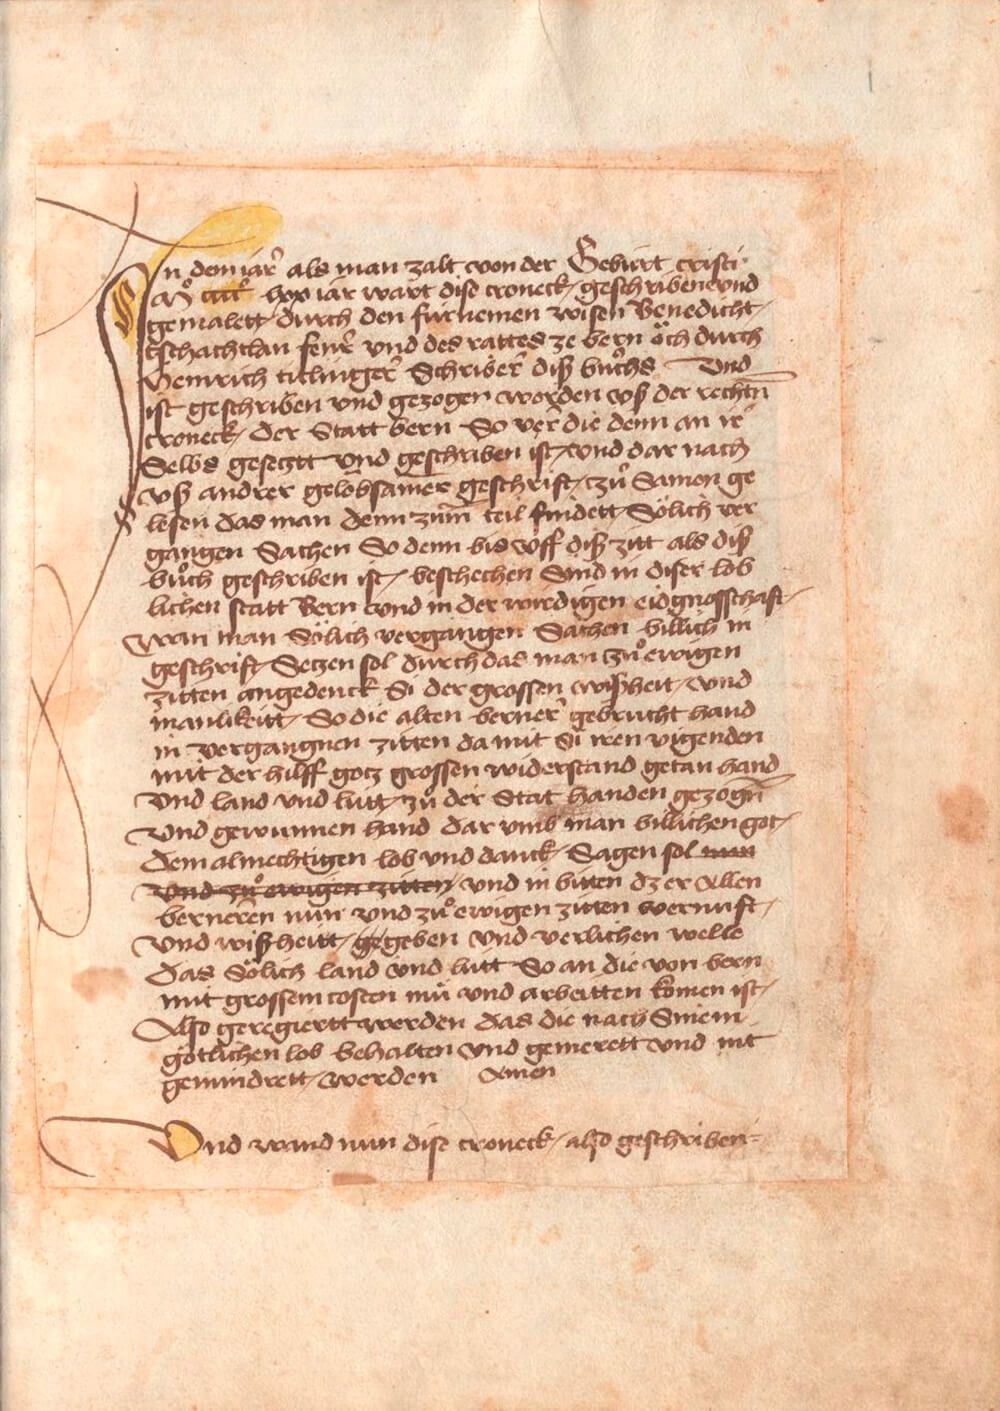 In dem jar̉ als man zalt von der Gebürt cristi
Mͦ ccccͦ lxx iar wart dise croneck / geschriben vnd
gemalett / durch den fürnemen wisen Benedicht /
tschachtlan fenr̉ vnd des rattes ze bern oͧch durch
heinrich titlinger̉ Schriber̉ diß buͦchs Vnd
ist geschriben vnd gezogen worden vß der rechtn̄
croneck / der Statt bern So ver̉ die denn an ir̉
Selbs gesetztt vnd geschriben ist / vnd dar nach
vß andrer gelobsamer̄ geschrift / zuͦ Samen ge
lesen das man denn zum̄ teil findett Sölich ver
gangen Sachen So denn bis vff diß zitt als diß
buͦch geschriben ist / beschechen Sind in diser lob
lichen statt Bern vnd in der wirdigen eidgnosschaft /
wan man Sölich vergangen Sachen billich in
geschrift / Setzen sol durch das man zuͦ ewigen
zitten angedenck Si der grossen wißheit / vnd
manlikeitt / So die alten berner̉ gebrucht hand
in vergangnen zitten da mit Si iren vigenden
mit der hilff gotz grossen widerstand getan hand
Vnd land vnd lütt / zuͦ der Stat handen gezogn̄
Vnd gewunnen hand dar vmb man billichen got /
dem almechtigen lob vnd danck / Sagen sol nun
Vnd zuͦ ewigen zitten / vnd in bitten dz er allen
berneren nun vnd zuͦ ewigen zitten vernuft /
Vnd wißheitt / gegeben vnd verlichen welle
das Sölich land vnd lütt So an die von bern
mit grossem costen mü vnd arbeitten komen ist /
Also geregiertt werden das die nach Sinem
götlichen lob behalten vnd gemerett vnd nit
gemindrett / werden Amen
Vnd wand nun dise croneck / also geschriben